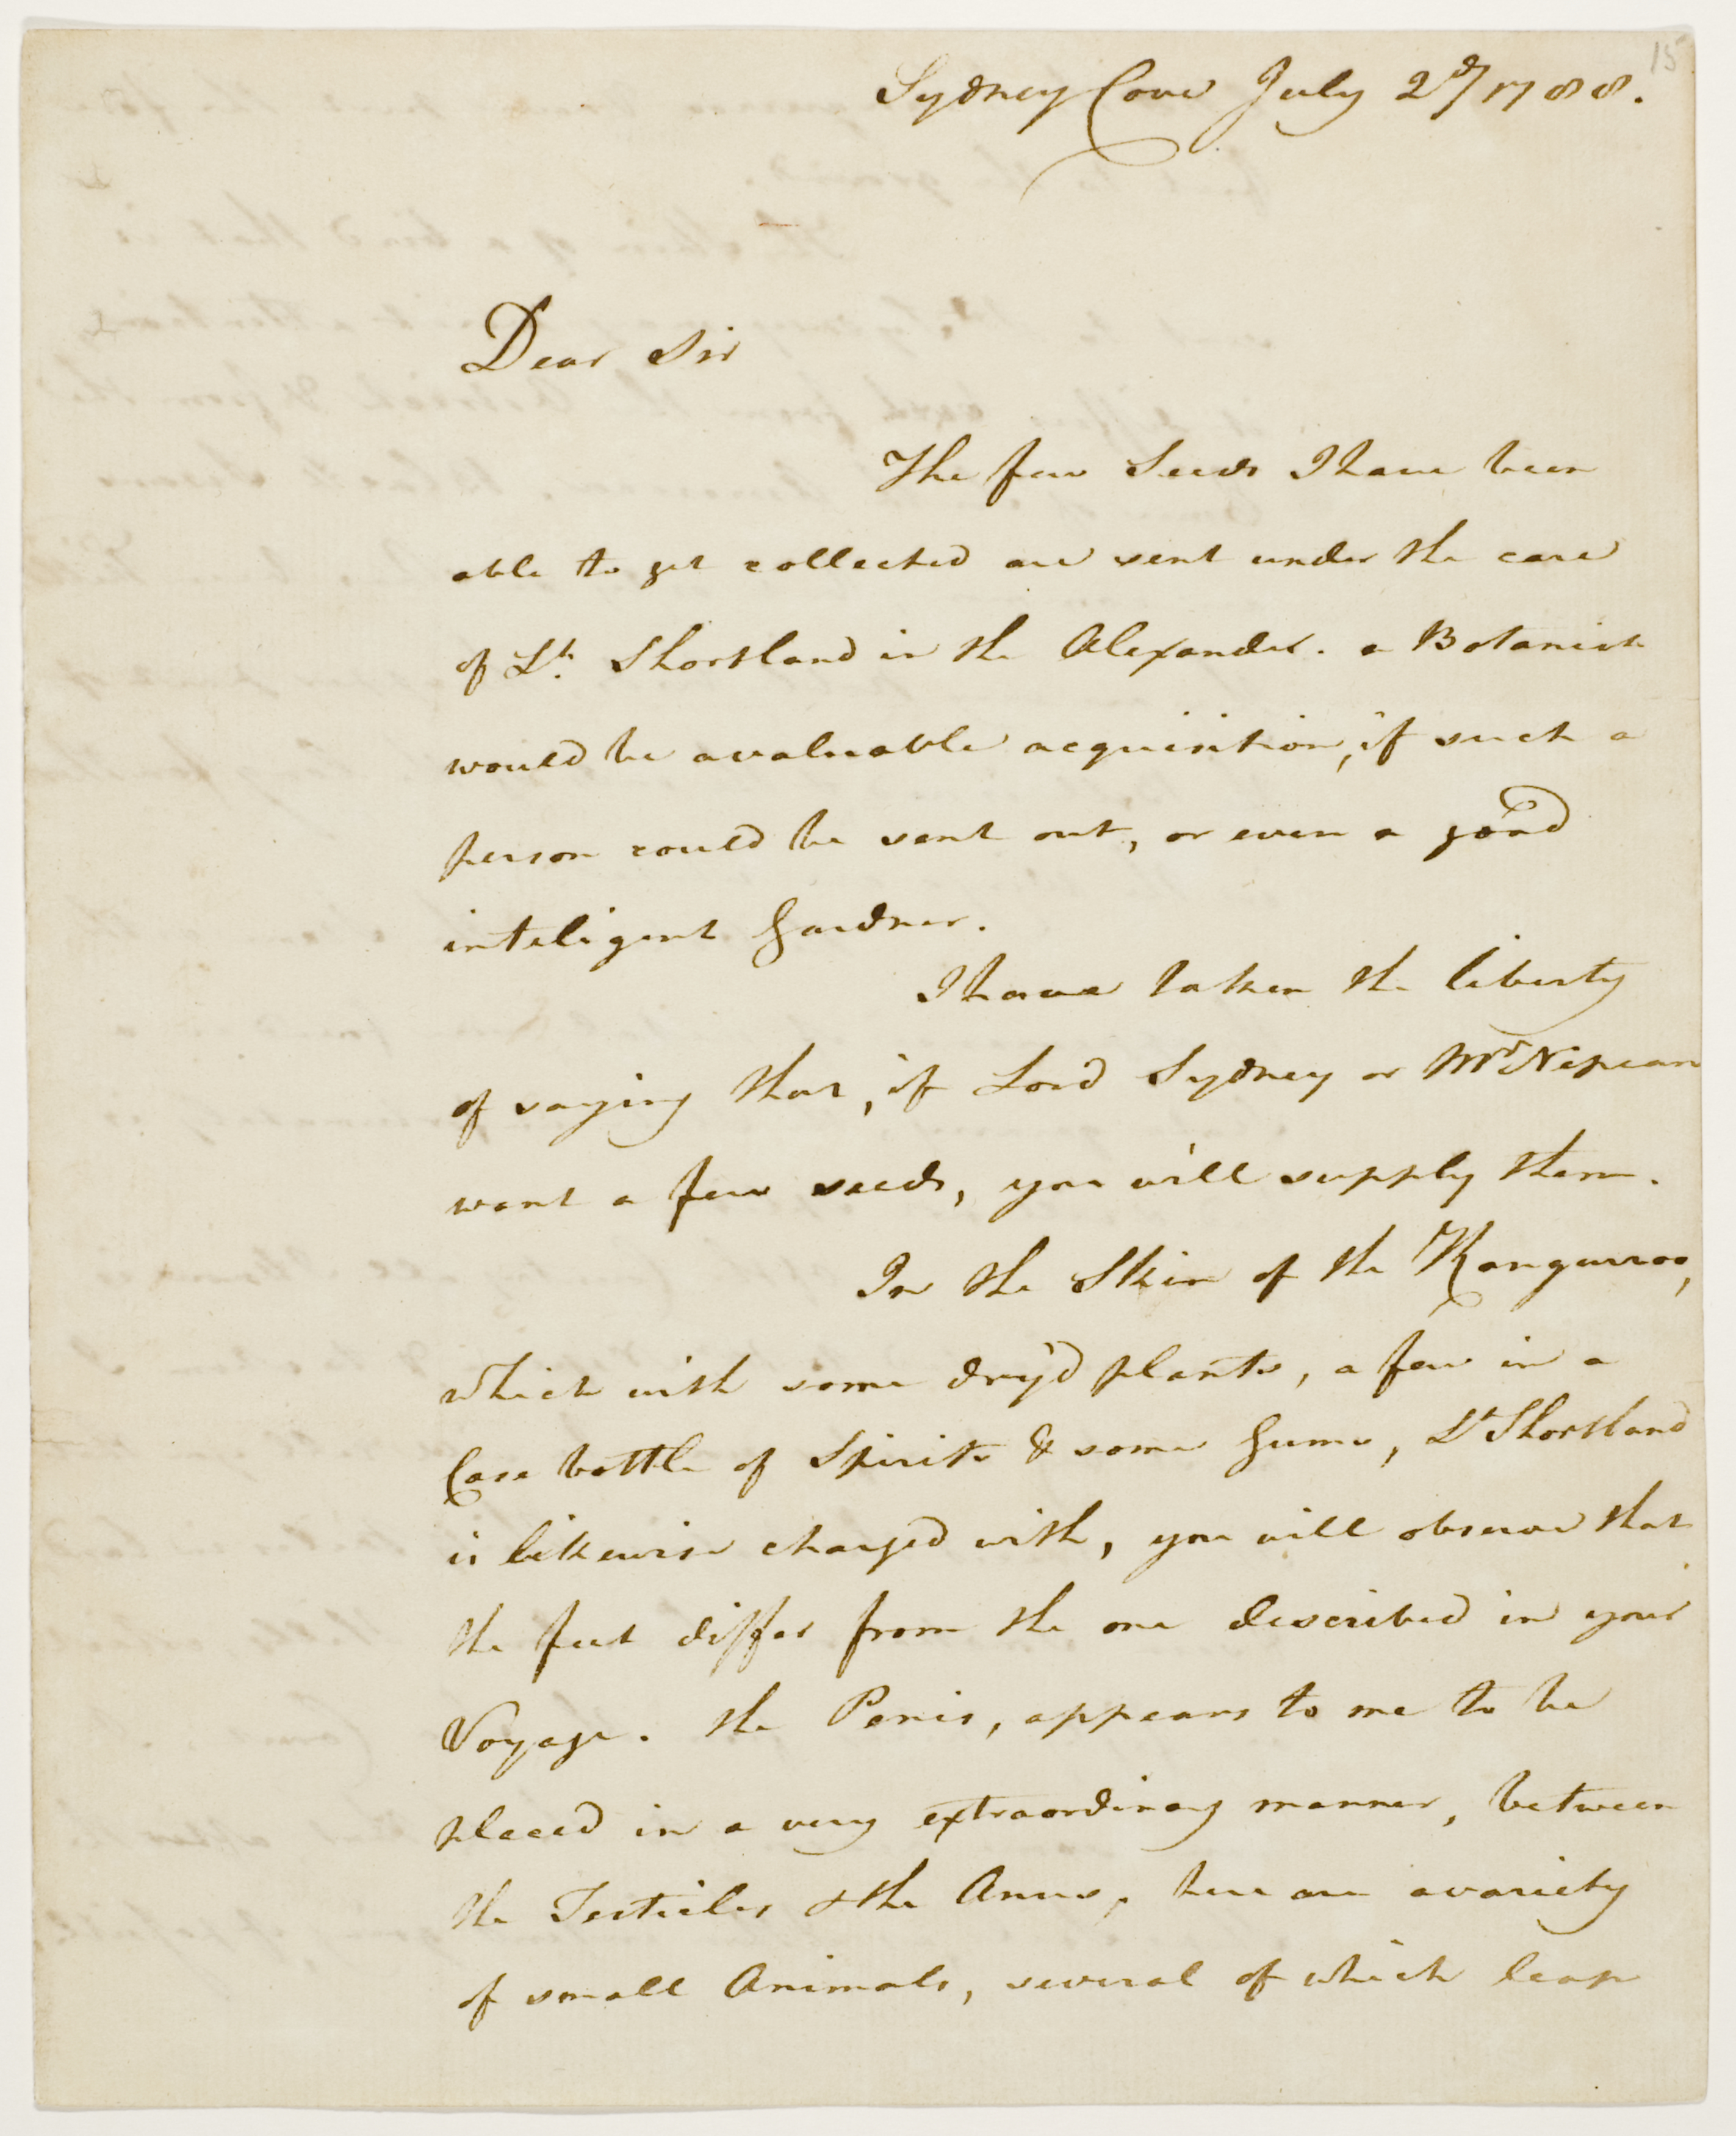 15
Sydney Cove July 2d/1788.
Dear Sir
The few Seeds I have been
able to get collected are sent under the care
of Lt. Shortland in the Alexander. a Botanist
would be a valuable acquisition, if such a
person could be sent out, or even a good
inteligent Gardner.
I have taken the liberty
of saying that, if Lord Sydney or Mr Nepean
want a few seeds, you will supply them.
In the Skin of the Kangurroo,
which with some dry'd plants, a few in a
Case bottle of Spirits & some Gums, Lt Shortland
is likewise charged with, you will observe that
the feet differ from the one described in your
Voyage. the Penis, appears to me to be
placed in a very extraordinary manner, between
the Testicles & the Anus, here are a variety
of small Animals, several of which leap